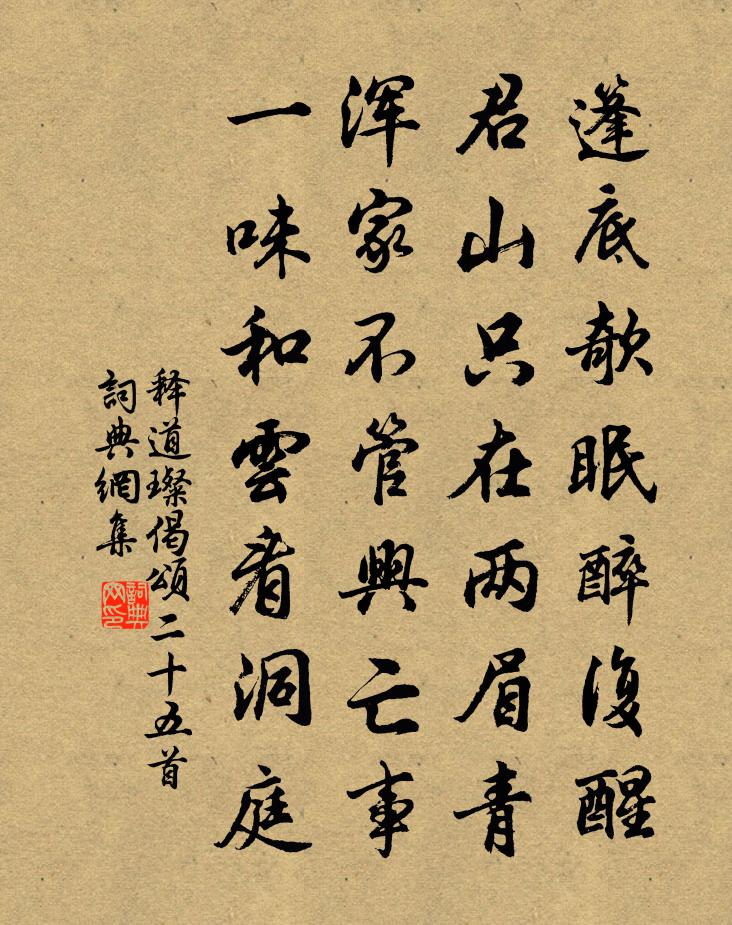 蓬底欹眠醉復醒
君山只在两眉青
渾家不管興亡事
一味和雲看洞庭
释道璨偈頌二十五首
詞典網集
詞典
网印